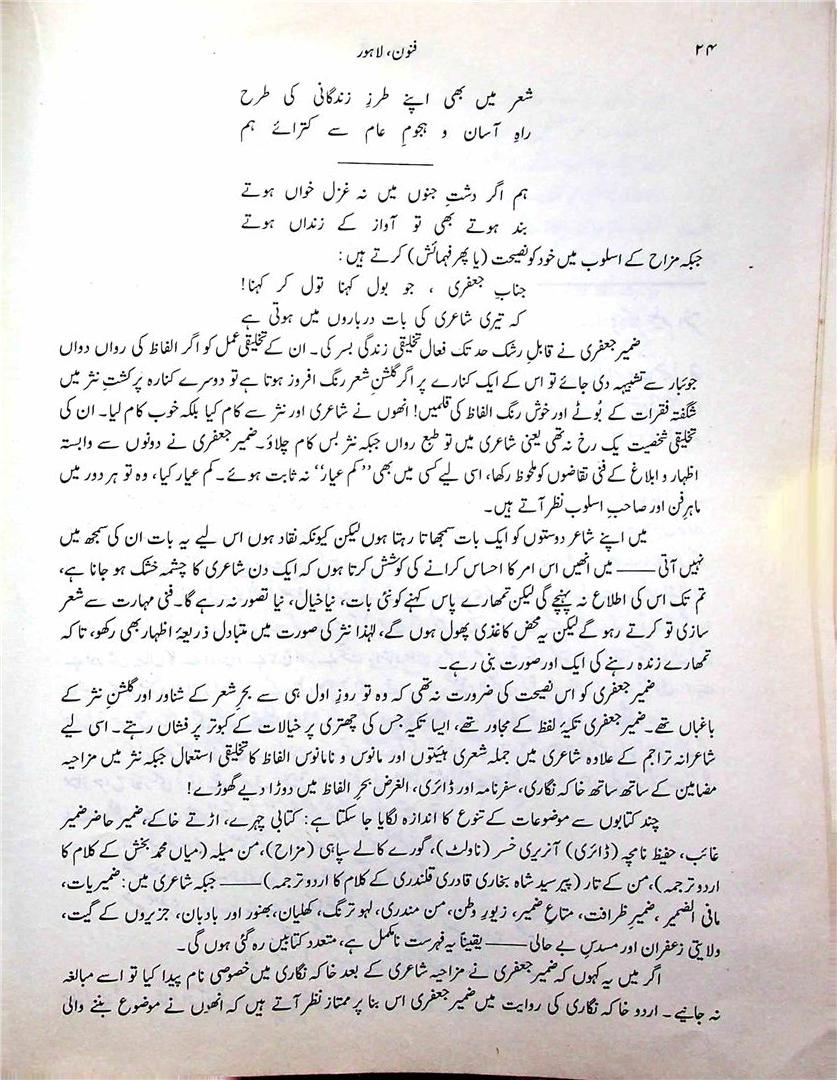 ۲۴
فنون، لاہور
شعر میں بھی اپنے طرزِ زندگانی کی طرح
راہِ آسان و ہجومِ عام سے کترائے ہم
ہم اگر دشتِ جنوں میں نہ غزل خواں ہوتے
بند ہوتے بھی تو آواز کے زنداں ہوتے
جبکہ مزاح کے اسلوب میں خود کو نصیحت (یا پھر فہمائش) کرتے ہیں:
جنابِ جعفری ، جو بول کہنا تول کر کہنا!
کہ تیری شاعری کی بات درباروں میں ہوتی ہے
ضمیر جعفری نے قابلِ رشک حد تک فعال تخلیقی زندگی بسر کی۔ ان کے تخلیقی عمل کو اگر الفاظ کی رواں دواں
جوئبار سے تشبیہہ دی جائے تو اس کے ایک کنارے پر اگر گلشنِ شعر رنگ افروز ہوتا ہے تو دوسرے کنارہ پر کشتِ نثر میں
شگفتہ فقرات کے بُوٹے اور خوش رنگ الفاظ کی قلمیں! انھوں نے شاعری اور نثر سے کام کیا بلکہ خوب کام لیا۔ ان کی
تخلیقی شخصیت یک رخ نہ تھی یعنی شاعری میں تو طبع رواں جبکہ نثر بس کام چلاؤ۔ ضمیر جعفری نے دونوں سے وابستہ
اظہار و ابلاغ کے فنی تقاضوں کو ملحوظ رکھا، اسی لیے کسی میں بھی ”کم عیار“ نہ ثابت ہوئے۔ کم عیار کیا، وہ تو ہر دور میں
ماہرِ فن اور صاحبِ اسلوب نظر آتے ہیں۔
میں اپنے شاعر دوستوں کو ایک بات سمجھاتا رہتا ہوں لیکن کیونکہ نقاد ہوں اس لیے یہ بات ان کی سمجھ میں
نہیں آتی —— میں انھیں اس امر کا احساس کرانے کی کوشش کرتا ہوں کہ ایک دن شاعری کا چشمہ خشک ہو جانا ہے،
تم تک اس کی اطلاع نہ پہنچے گی لیکن تمھارے پاس کہنے کو نئی بات، نیا خیال، نیا تصور نہ رہے گا۔ فنی مہارت سے شعر
سازی تو کرتے رہو گے لیکن یہ محض کاغذی پھول ہوں گے، لہٰذا نثر کی صورت میں متبادل ذریعۂ اظہار بھی رکھو، تاکہ
تمھارے زندہ رہنے کی ایک اور صورت بنی رہے۔
ضمیر جعفری کو اس نصیحت کی ضرورت نہ تھی کہ وہ تو روزِ اول ہی سے بحرِ شعر کے شناور اور گلشنِ نثر کے
باغباں تھے۔ ضمیر جعفری تکیۂ لفظ کے مجاور تھے، ایسا تکیہ جس کی چھتری پر خیالات کے کبوتر پر فشاں رہتے۔ اسی لیے
شاعرانہ تراجم کے علاوہ شاعری میں جملہ شعری ہیئتوں اور مانوس و نامانوس الفاظ کا تخلیقی استعمال جبکہ نثر میں مزاحیہ
مضامین کے ساتھ ساتھ خاکہ نگاری، سفرنامہ اور ڈائری، الغرض بحرِ الفاظ میں دوڑا دیے گھوڑے!
چند کتابوں سے موضوعات کے تنوع کا اندازہ لگایا جا سکتا ہے: کتابی چہرے، اڑتے خاکے، ضمیر حاضر ضمیر
غائب، حفیظ نامچہ (ڈائری) آنریری خسر (ناولٹ)، گورے کالے سپاہی (مزاح)، من میلہ (میاں محمد بخش کے کلام کا
اردو ترجمہ)، من کے تار (پیر سید شاہ بخاری قادری قلندری کے کلام کا اردو ترجمہ) —— جبکہ شاعری میں: ضمیریات،
مافی الضمیر، ضمیرِ ظرافت، متاعِ ضمیر، زیورِ وطن، من مندری، لہو ترنگ، کھلیان، بھنور اور بادبان، جزیروں کے گیت،
ولایتی زعفران اور مسدسِ بے حالی —— یقیناً یہ فہرست نامکمل ہے، متعدد کتابیں رہ گئی ہوں گی۔
اگر میں یہ کہوں کہ ضمیر جعفری نے مزاحیہ شاعری کے بعد خاکہ نگاری میں خصوصی نام پیدا کیا تو اسے مبالغہ
نہ جانیے۔ اردو خاکہ نگاری کی روایت میں ضمیر جعفری اس بنا پر ممتاز نظر آتے ہیں کہ انھوں نے موضوع بننے والی